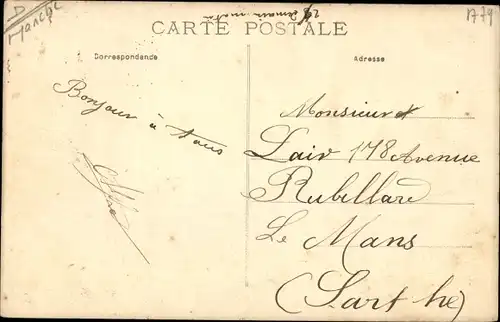 D
Manche
1779
CARTE POSTALE
Correspondance
Adresse
Bonjour à tous
Monsieur
Lair 178 Avenue
Rubillard
Le Mans
(Sarthe)